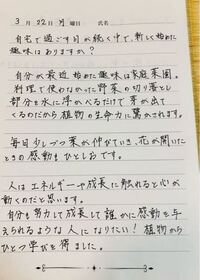 3月22日 月曜日 氏名
自宅で過ごす日が続く中で、新しく始めた
趣味はありますか？
自分が最近始めた趣味は家庭菜園。
料理で使わなかった野菜の切り落とし
部分を水に浮かべるだけで芽が出て
くるのだから植物の生命力に驚かされます。
毎日少しづつ葉が伸びていき、花が開いた
ときの感動もひとしおです。
人はエネルギーや成長に触れると心が
動くのだと思います。
自分も努力して成長して誰かに感動を与
えられるような人になりたい！植物から
ひとつ学びを得ました。